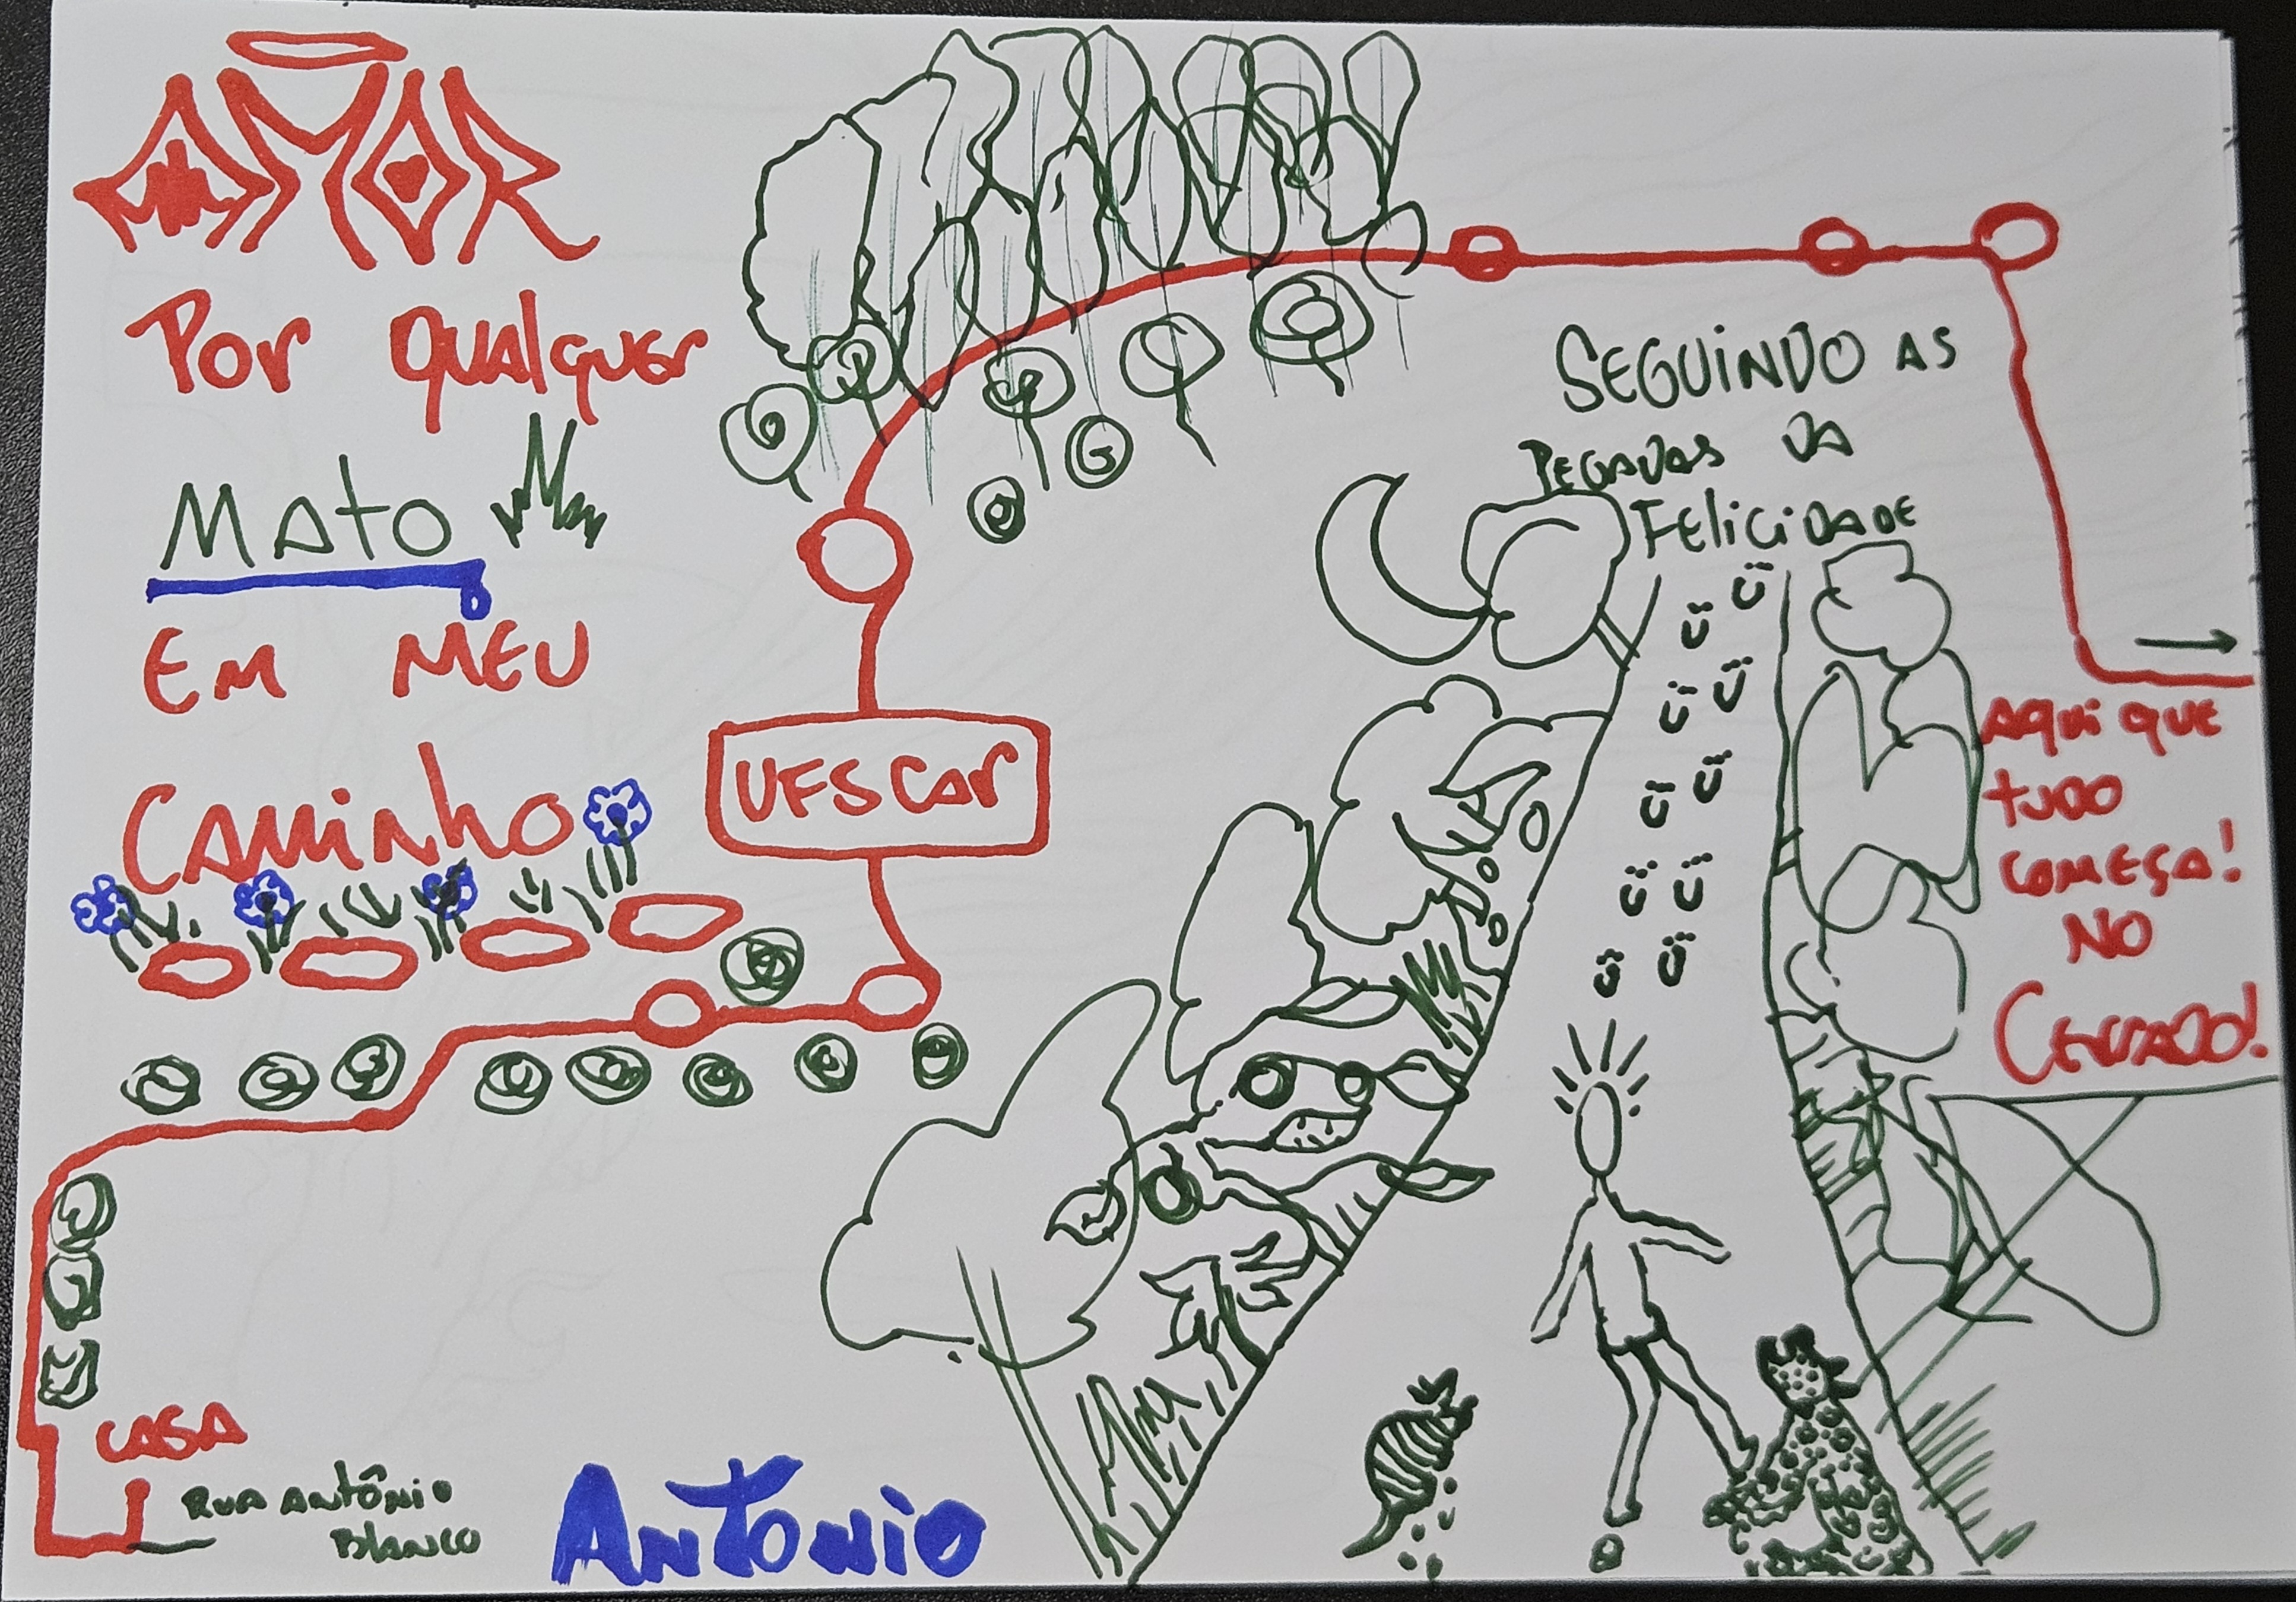 AMOR
Por qualquer
Mato
Em meu
Caminho
UFSCar
SEGUINDO AS
PEGADAS DA
FELICIDADE
AQUI QUE
TUDO
COMEÇA!
NO
CERRADO!
CASA
RUA ANTÔNIO
BLANCO
ANTONIO